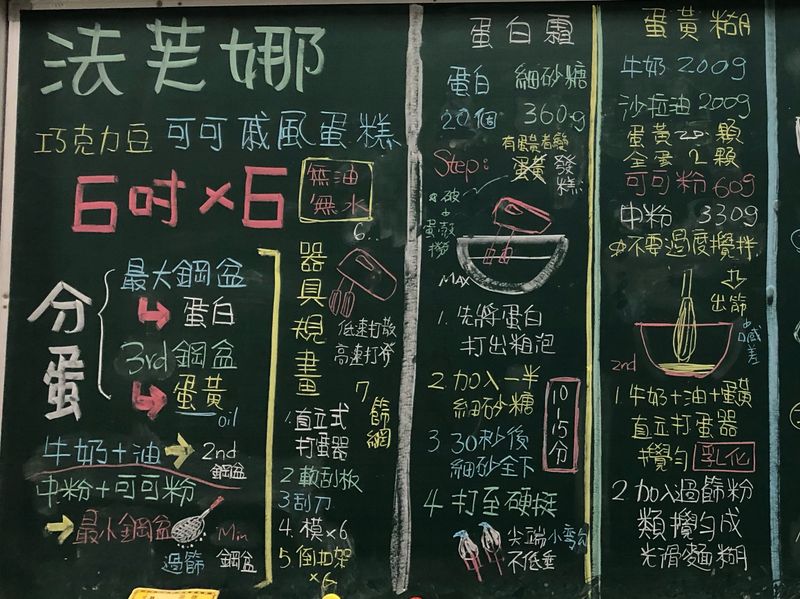 法芙娜
巧克力豆 可可戚風蛋糕
6吋×6
無油
無水
分蛋
最大鋼盆
蛋白
3rd鋼盆
蛋黃
oil
牛奶+油
2nd
鋼盆
中粉+可可粉
最小鋼盆
過篩
Min
鋼盆
器具規畫
6..
低速打散
高速打發
7
篩網
1.直立式
打蛋器
2軟刮板
3刮刀
4.模×6
5倒扣架
×6
蛋白霜
蛋白 細砂糖
20個 360g
Step:
蛋黃 發糕
破
蛋殼
撈
MAX
1.先將蛋白
打出粗泡
2加入一半
細砂糖
3 30秒後
細砂全下
4打至硬挺
10-15分
尖端小彎勾
不低垂
蛋黃糊
牛奶 200g
沙拉油 200g
蛋黃 20顆
全蛋 2顆
可可粉 60g
中粉 330g
不要過度攪拌
出筋
2nd
1牛奶+油+蛋黃
直立打蛋器
攪勻 乳化
2加入過篩粉
類攪勻成
光滑麵糊